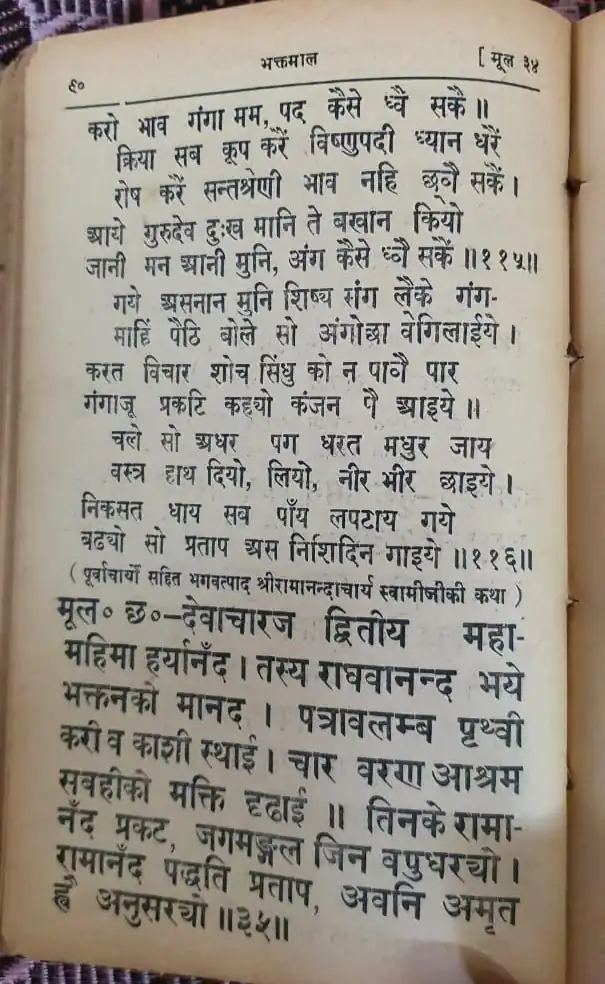 ६० भक्तमाल [ मूल ३४
करो भाव गंगा मम, पद कैसे ध्वै सकै ॥
क्रिया सब कूप करैं विष्णुपदी ध्यान धरैं
रोष करैं सन्तश्रेणी भाव नहि छ्वौ सकैं ।
आये गुरुदेव दुःख मानि ते बखान कियो
जानी मन आनी मुनि, अंग कैसे ध्वौ सकैं ॥११५॥
गये असनान मुनि शिष्य संग लैके गंग-
माहिं पैठि बोले सो अंगोछा वेगिलाईये ।
करत विचार शोच सिंधु को न पावै पार
गंगाजू प्रकटि कह्यो कंजन पै आइये ॥
चले सो अधर पग धरत मधुर जाय
वस्त्र हाथ दियो, लियो, नीर भीर छाइये ।
निकसत धाय सब पाँय लपटाय गये
बढ्यो सो प्रताप अस निशिदिन गाइये ॥११६॥
( पूर्वाचार्यों सहित भगवत्पाद श्रीरामानन्दाचार्य स्वामीजीकी कथा )
मूल० छ०—देवाचारज द्वितीय महा-
महिमा हर्यानँद । तस्य राघवानन्द भये
भक्तनको मानद । पत्रावलम्ब पृथ्वी
करी व काशी स्थाई । चार वरण आश्रम
सवहीको भक्ति दृढाई ॥ तिनके रामा-
नँद प्रकट, जगमङ्गल जिन वपुधरच्यो ।
रामानँद पद्धति प्रताप, अवनि अमृत
ह्वै अनुसरच्यो ॥३५॥